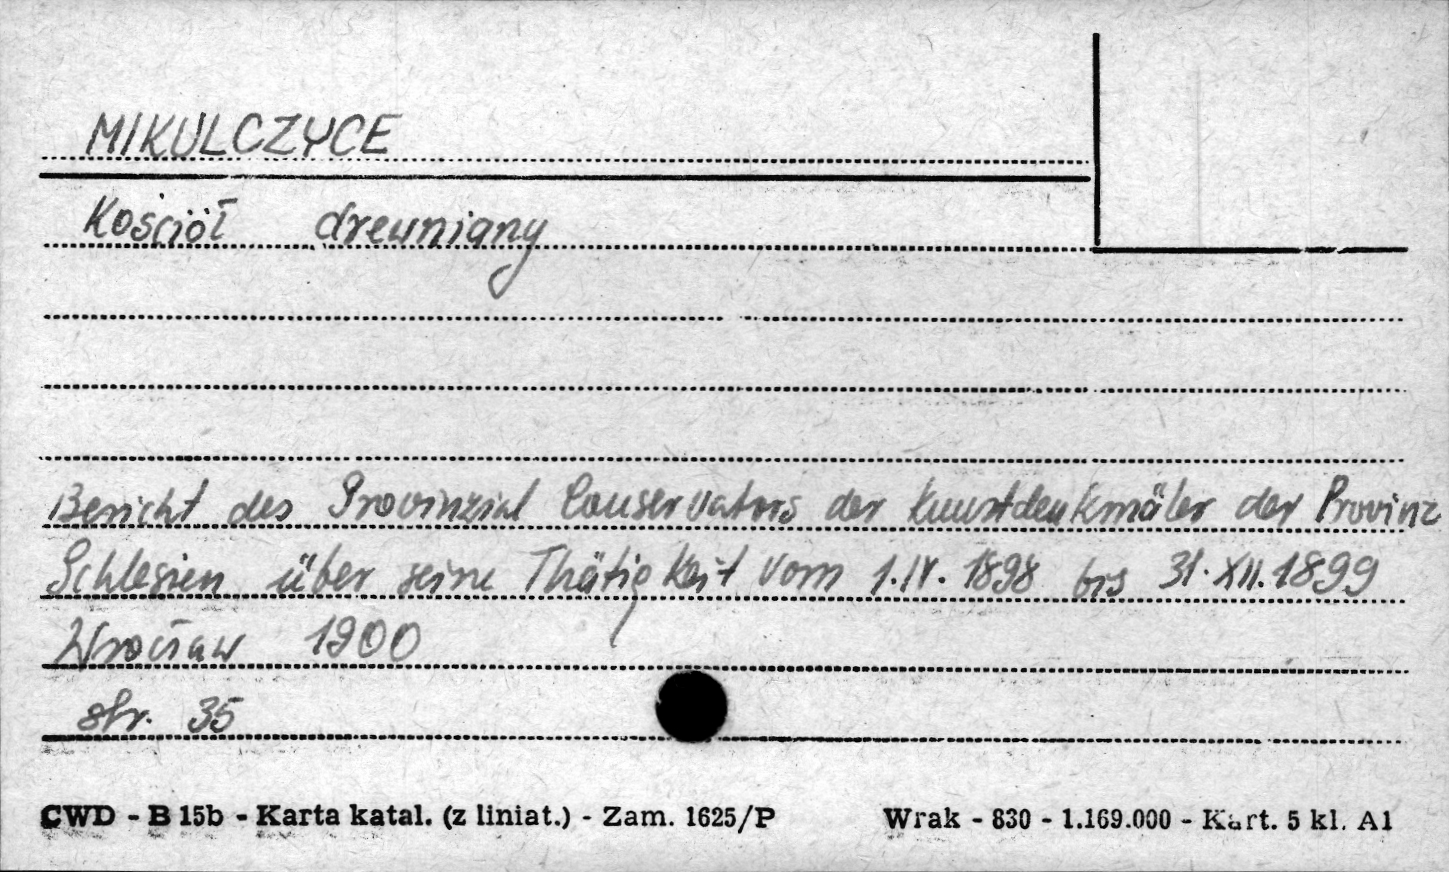 MIKULCZYCE
Kościół drewniany
Bericht des Provinzial Conservators der Kunstdenkmäler der Provinz
Schlesien über seine Thätigkeit vom 1.IV.1898 bis 31.XII.1899
Wrocław 1900
str. 35
CWD - B 15b - Karta katal. (z liniat.) - Zam. 1625/P Wrak - 830 - 1.169.000 - Kart. 5 kl. A1